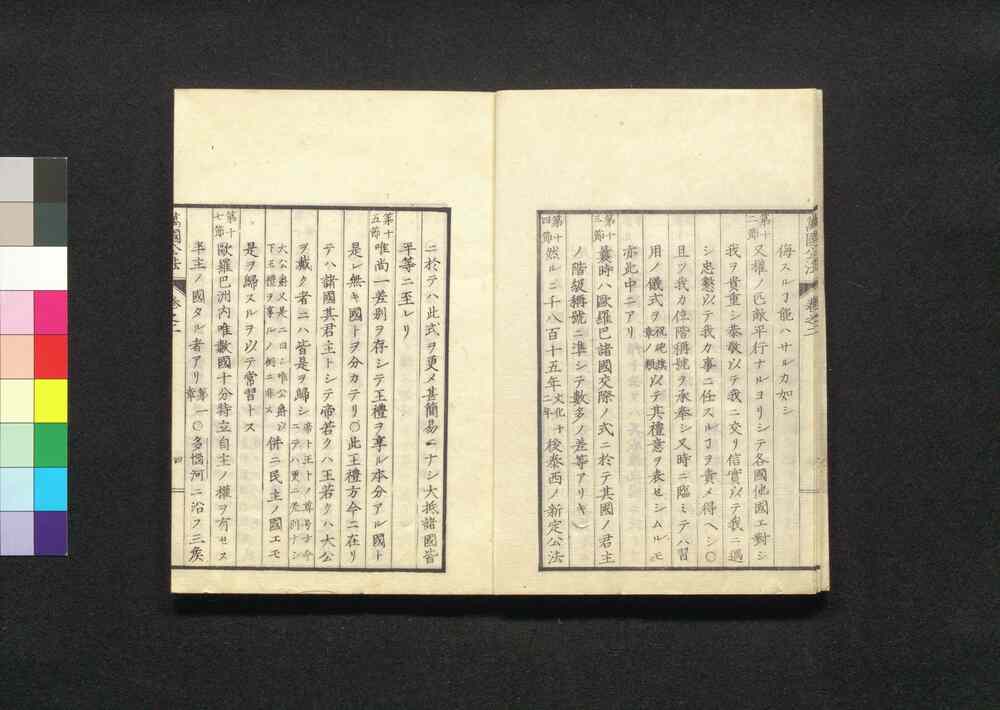 侮スルヿ能ハサルカ如シ
第十二節 又權ノ匹敵平行ナルヨリシテ各國他國エ對シ
我ヲ貴重シ恭敬以テ我ニ交リ信實以テ我ニ遇
シ忠懃以テ我カ事ニ任スルヿヲ責メ得ヘシ〇
且ツ我カ位階稱號ヲ承奉シ又時ニ臨ミテハ習
用ノ儀式ヲ祝砲旗章ノ類以テ其禮意ヲ表セシムルモ
亦此中ニアリ
第十三節 曩時ハ歐羅巴諸國交際ノ式ニ於テ其國ノ君主
ノ階級稱號ニ準シテ數多ノ差等アリキ
第十四節 然ルニ千八百十五年文化十二年後泰西ノ新定公法
萬國公法 卷之二
ニ於テハ此式ヲ更メ甚簡易ニナシ大抵諸國皆
平等ニ至レリ
第十五節 唯尚一差別ヲ存シテ王禮ヲ享ル本分アル國ト
是レ無キ國トヲ分カテリ〇此王禮方今ニ在リ
テハ諸國其君主トシテ帝若クハ王若クハ大公
ヲ戴ク者ニハ皆是ヲ歸シ帝ト王トノ尊号方今ニテハ更ニ差別ナシ
大公爵又是ニ同シ唯公爵以下王禮ヲ享ルノ例ニ非ス 併ニ民主ノ國エモ
是ヲ歸スルヲ以テ常習トス
第十七節 歐羅巴洲内唯數國十分特立自主ノ權ヲ有セス
半主ノ國タル者アリ第一章〇多惱河ニ沿フ三矦
萬國公法 卷之二 四